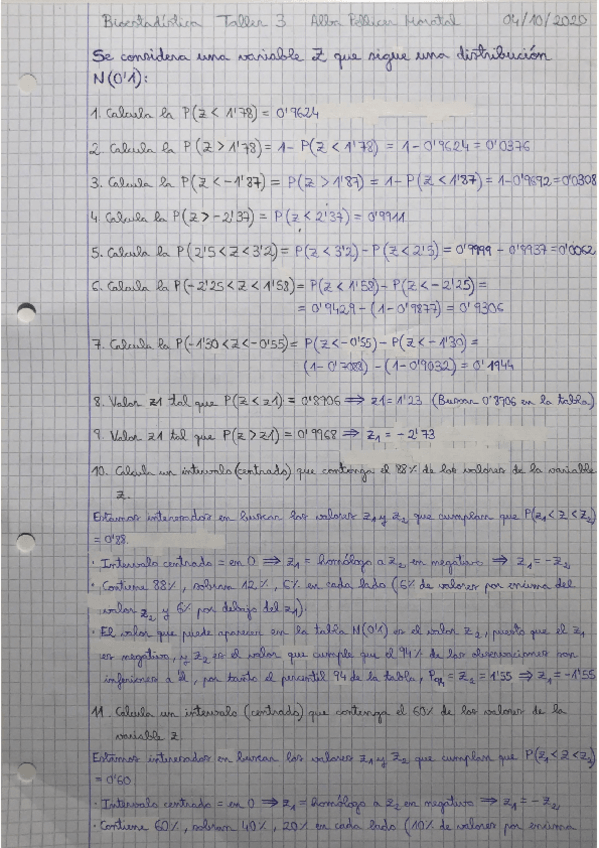 Bioestadística Taller 3 Alba Pellicer Moratal 04/10/2020
Se considera una variable Z que sigue una distribución
N(0'1):
1. Calcula la P(Z < 1'78) = 0'9624
2. Calcula la P(Z > 1'78) = 1 - P(Z < 1'78) = 1 - 0'9624 = 0'0376
3. Calcula la P(Z < -1'87) = P(Z > 1'87) = 1 - P(Z < 1'87) = 1 - 0'9692 = 0'0308
4. Calcula la P(Z > -2'37) = P(Z < 2'37) = 0'9911
5. Calcula la P(2'5 < Z < 3'2) = P(Z < 3'2) - P(Z < 2'5) = 0'9999 - 0'9937 = 0'0062
6. Calcula la P(-2'25 < Z < 1'58) = P(Z < 1'58) - P(Z < -2'25) =
= 0'9429 - (1 - 0'9877) = 0'9306
7. Calcula la P(-1'30 < Z < -0'55) = P(Z < -0'55) - P(Z < -1'30) =
(1 - 0'7088) - (1 - 0'9032) = 0'1944
8. Valor z1 tal que P(Z < z1) = 0'8906 ⇒ z1 = 1'23 (Buscar 0'8906 en la tabla)
9. Valor z1 tal que P(Z > z1) = 0'9968 ⇒ z₁ = -2'73
10. Calcula un intervalo (centrado) que contenga el 88% de los valores de la variable
Z.
Estamos interesados en buscar los valores z₁ y z₂ que cumplan que P(z₁ < Z < z₂)
= 0'88.
· Intervalo centrado = en 0 ⇒ z₁ = homólogo a z₂ en negativo ⇒ z₁ = -z₂
· Contiene 88%, sobran 12%, 6% en cada lado (6% de valores por encima del
valor z₂ y 6% por debajo del z1).
· El valor que puede aparecer en la tabla N(0'1) es el valor z₂, puesto que el z₁
es negativo, y z₂ es el valor que cumple que el 94% de las observaciones son
inferiores a él, por tanto el percentil 94 de la tabla, P₉₄ = z₂ = 1'55 ⇒ z₁ = -1'55
11. Calcula un intervalo (centrado) que contenga el 60% de los valores de la
variable Z
Estamos interesados en buscar los valores z₁ y z₂ que cumplan que P(z₁ < Z < z₂)
= 0'60
· Intervalo centrado = en 0 ⇒ z₁ = homólogo a z₂ en negativo ⇒ z₁ = -z₂
· Contiene 60%, sobran 40%, 20% en cada lado (10% de valores por encima